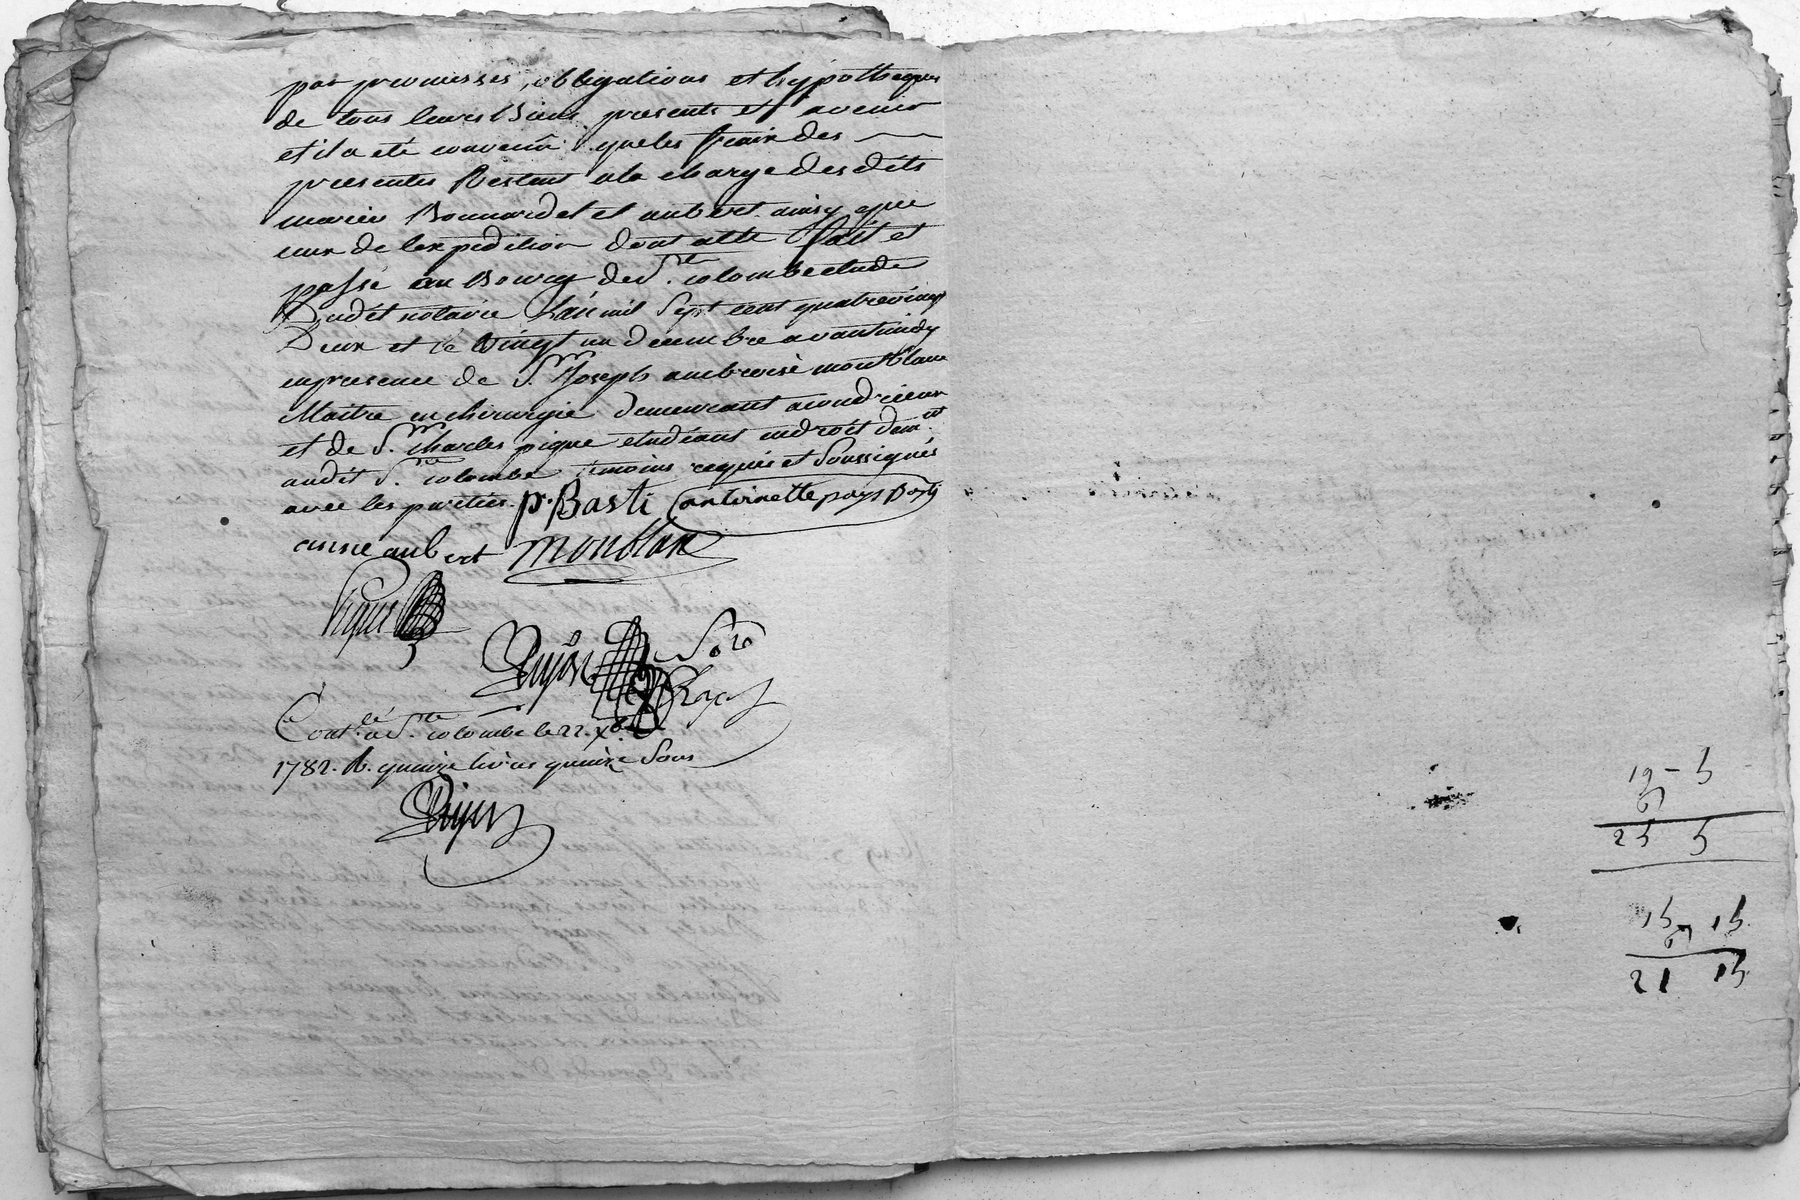 par promesses, obligations et hypotheques
de tous leurs Biens presents et avenir
et il a eté convenu que les fraix des
presentes Restent a la charge desdits
mariés Bonnardel et aubert ainsy que
ceux de lexpedition dont acte Fait et
passé au Bourg de Ste. colombe etude
Dudit notaire L'an mil Sept cent quatrevingt
Deux et le vingt un decembre avant midy
en presence de Sr. Joseph ambroise montblanc
Maitre en chirurgie demeurant a condrieux
et de Sr. charles pique etudiant en droit demt.
audit Ste. colombe temoins requis et Soussignés
avec les parties. pr. Basti antoinette pays Basti
anne aubert monblanc
Pique
Dujon
Contlé. a Ste. colombe le 22. Xbre
1782. R. quinze livres quinze Sous
19 - 5
6
25 5
15 15
6
21 15